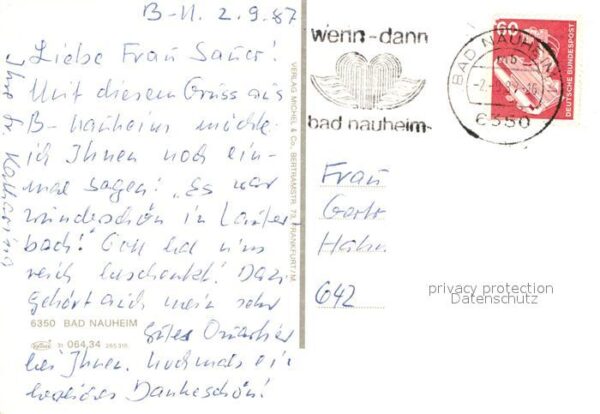 B-N. 2.9.87
Liebe Frau Sauer!
Mit diesem Gruss aus
B-Nauheim möchte
ich Ihnen noch ein-
mal sagen: „Es war
wunderschön in Lauter-
bach!" Gott hat uns
reich beschenkt! Dazu
gehört auch mein sehr
gutes Quartier
bei Ihnen. Nochmals ein
herzliches Dankeschön!
Ihre Sr. Katharina
6350 BAD NAUHEIM
064,34
VERLAG MICHEL & CO. BERTRAMSTR. 73, FRANKFURT/M.
wenn-dann
bad nauheim
BAD NAUHEIM
6350
60
DEUTSCHE BUNDESPOST
Frau
642
privacy protection
Datenschutz